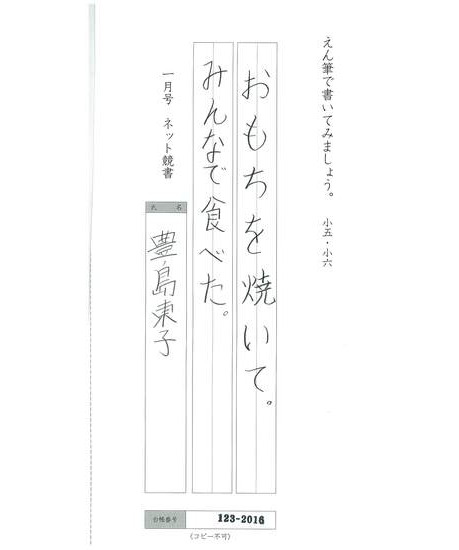 えん筆で書いてみましょう。 小五・小六
おもちを焼いて。
みんなで食べた。
一月号 ネット競書
氏名
豊島東子
台帳番号 123-2016
(コピー不可)